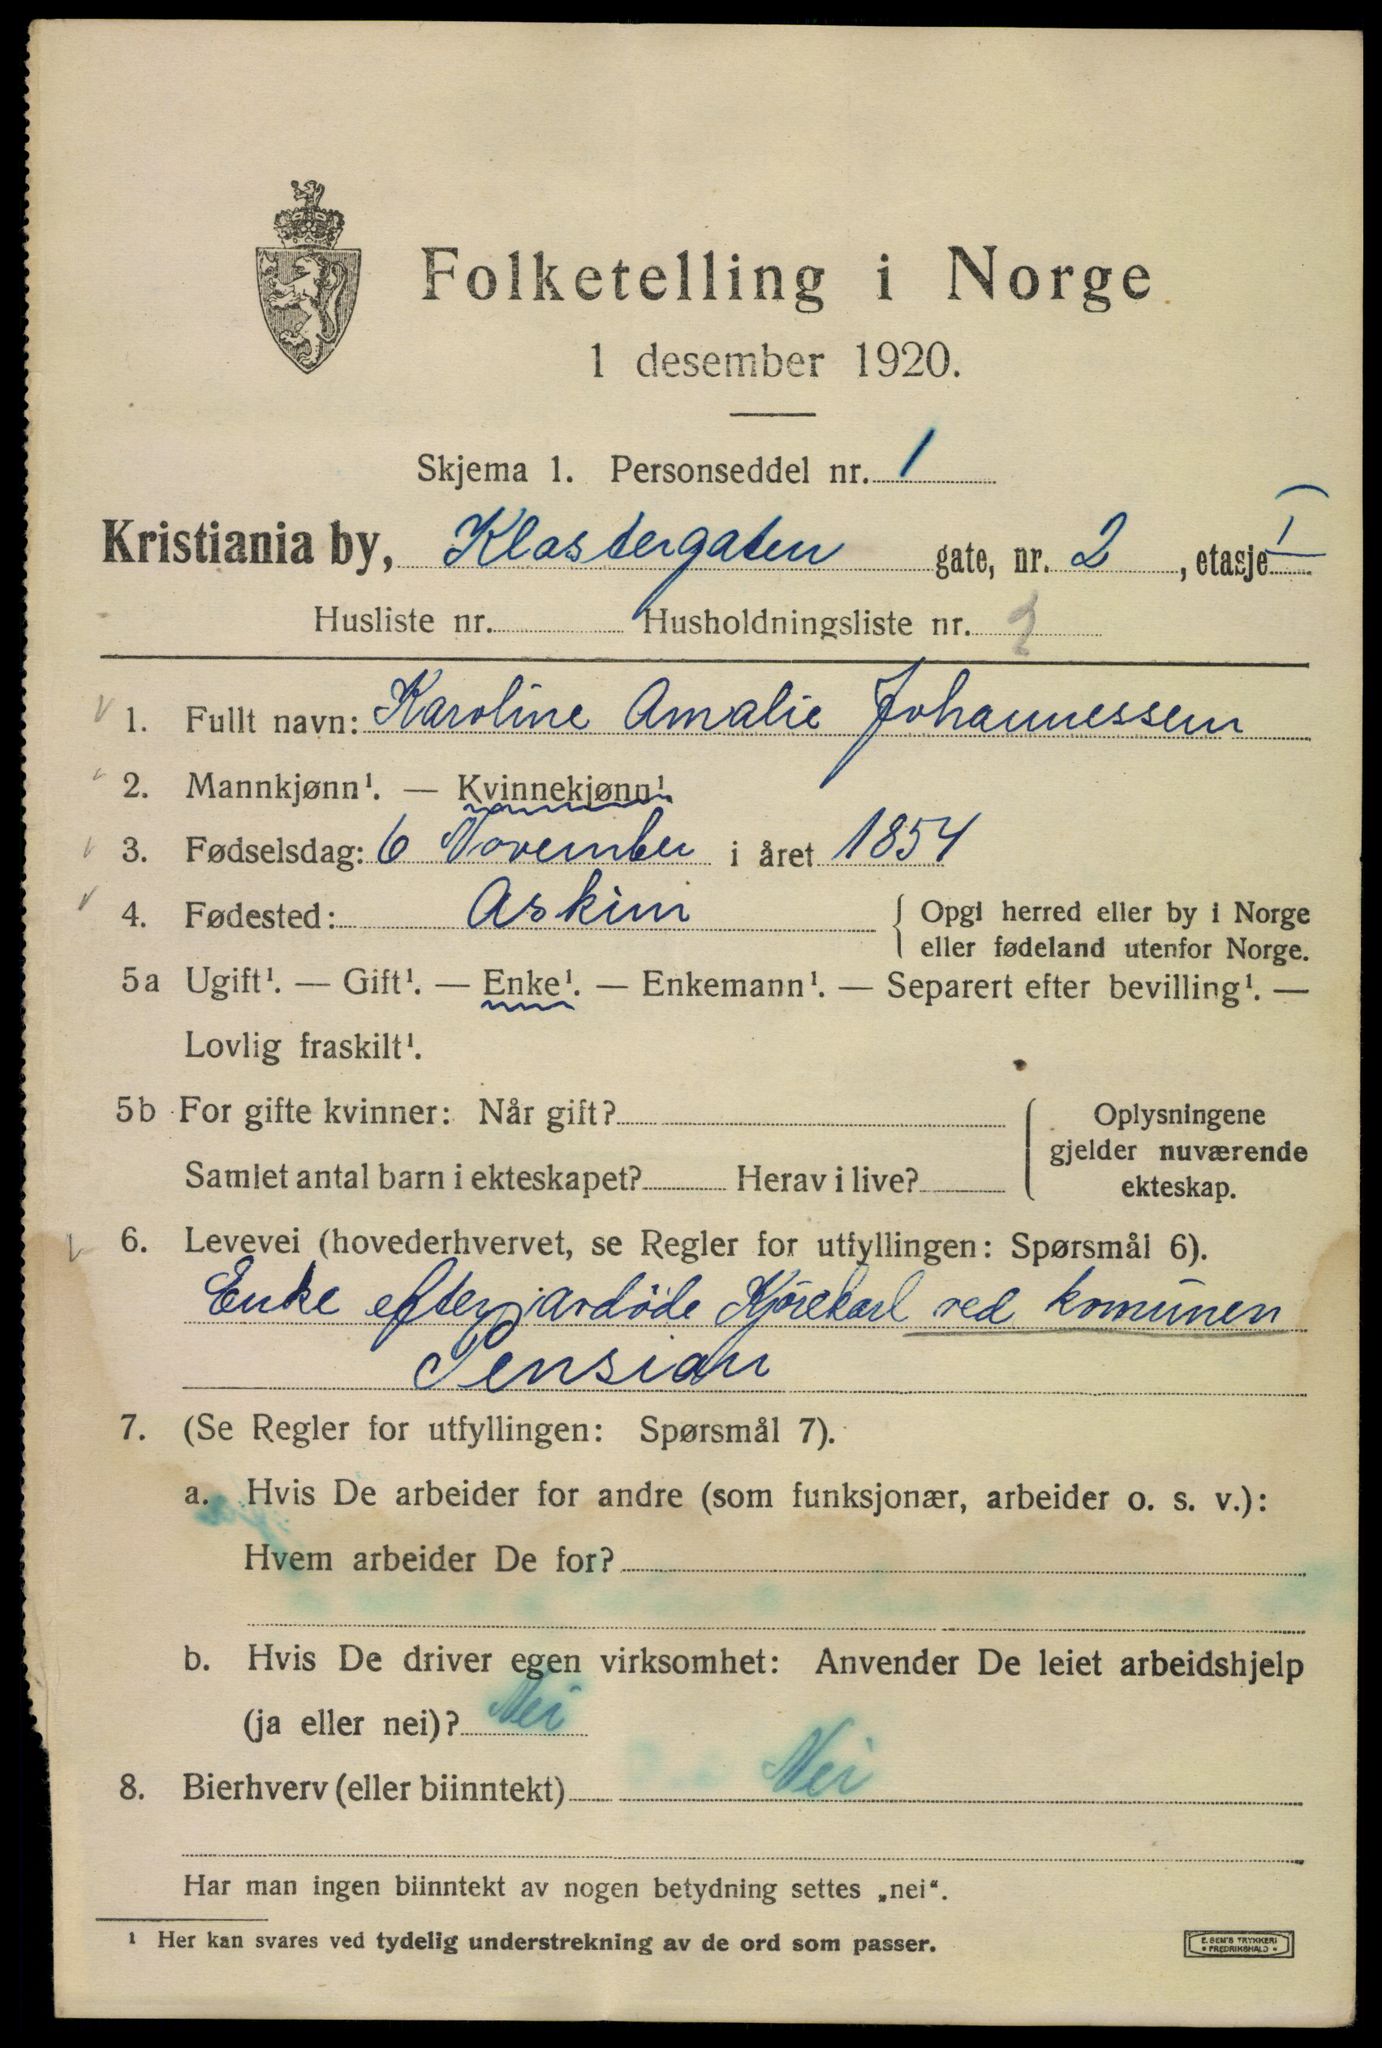 Folketelling i Norge
1 desember 1920.
Skjema 1. Personseddel nr. 1
Kristiania by, Klostergaten gate, nr. 2, etasje I
Husliste nr. Husholdningsliste nr. 2
1. Fullt navn: Karoline Amalie Johannessen
2. Mannkjønn¹. — Kvinnekjønn¹.
3. Fødselsdag: 6 November i året 1854
4. Fødested: Askim { Opgi herred eller by i Norge
eller fødeland utenfor Norge.
5a Ugift¹. — Gift¹. — Enke¹. — Enkemann¹. — Separert efter bevilling¹. —
Lovlig fraskilt¹.
5b For gifte kvinner: Når gift?
Samlet antal barn i ekteskapet? Herav i live?
Oplysningene
gjelder nuværende
ekteskap.
6. Levevei (hovederhvervet, se Regler for utfyllingen: Spørsmål 6).
Enke efter avdøde Kjørekarl ved komunen
Pension
7. (Se Regler for utfyllingen: Spørsmål 7).
a. Hvis De arbeider for andre (som funksjonær, arbeider o. s. v.):
Hvem arbeider De for?
b. Hvis De driver egen virksomhet: Anvender De leiet arbeidshjelp
(ja eller nei)? Nei
8. Bierhverv (eller biinntekt) Nei
Har man ingen biinntekt av nogen betydning settes „nei“.
¹ Her kan svares ved tydelig understrekning av de ord som passer.
E. SEM'S TRYKKERI
• FREDRIKSHALD •